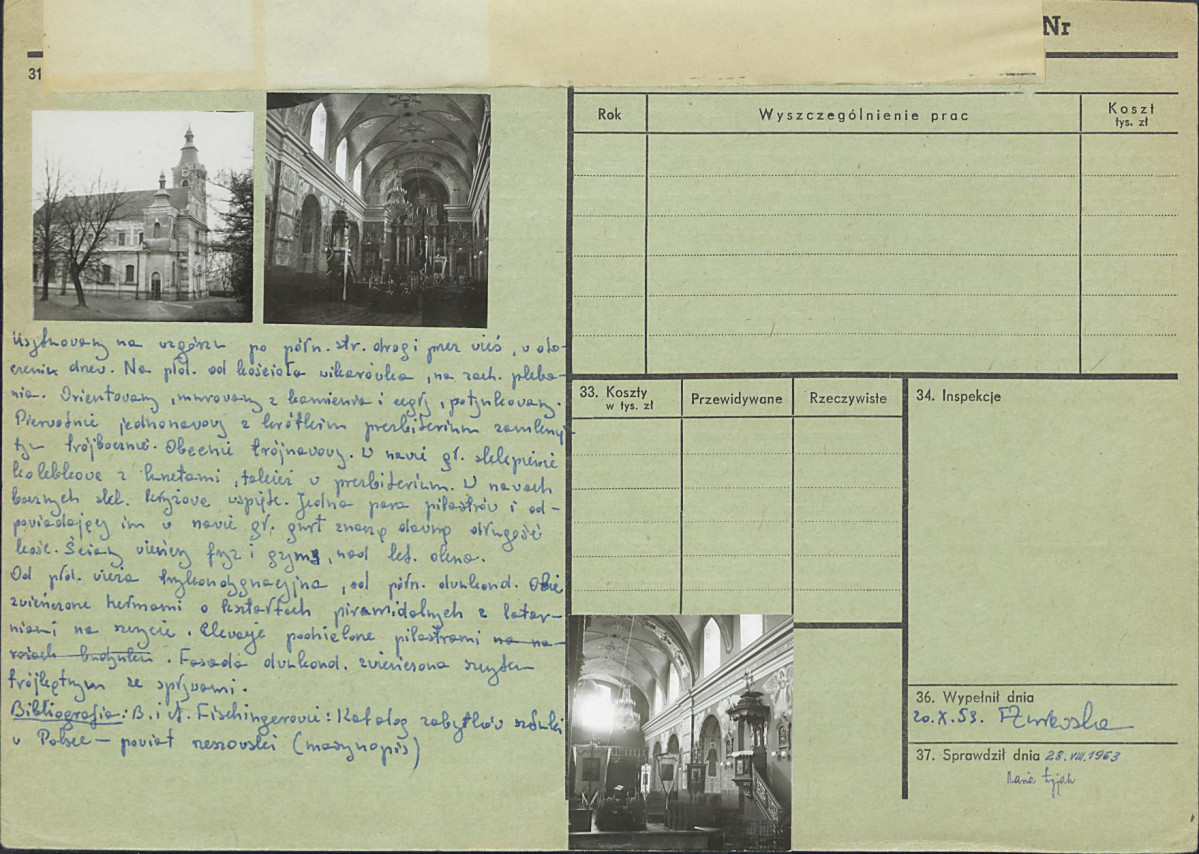 Nr
31
Usytuowany na wzgórzu po półn. str. drogi przez wieś, w oto-
czeniu drzew. Na płd. od kościoła wikarówka, na zach. pleba-
nia. Orientowany, murowany z kamienia i cegły, potynkowany.
Pierwotnie jednonawowy z krótkim prezbiterium zamknię-
tym trójbocznie. Obecnie trójnawowy. W nawie gł. sklepienie
kolebkowe z lunetami, takież w prezbiterium. W nawach
bocznych skl. krzyżowe wspięte. Jedna para pilastrów i od-
powiadający im w nawie gł. gurt znaczą dawną długość
kośc. Ściany wieńczy fryz i gzyms, nad
Od płd. wieża trzykondygnacyjna, od półn. dwukond. Obie
zwieńczone hełmami o kształtach piramidalnych z latar-
niami na szczycie. Elewacje podzielone pilastrami na na-
rożach budynku. Fasada dwukond. zwieńczona szczytem
trójkątnym ze spływami.
Bibliografia: B. i A. Fischingerowie: Katalog zabytków sztuki
w Polsce – powiat rzeszowski (maszynopis)
Rok
Wyszczególnienie prac
Koszt
tys. zł
33. Koszty
w tys. zł
Przewidywane
Rzeczywiste
34. Inspekcje
36. Wypełnił dnia
20.X.53.
37. Sprawdził dnia 28.VIII.1963
Maria